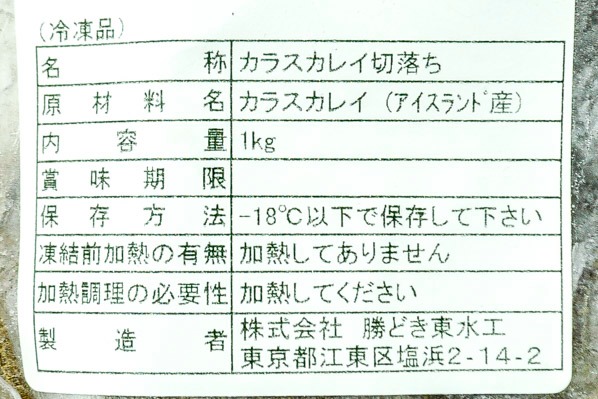 (冷凍品)
名称 カラスカレイ切落ち
原材料名 カラスカレイ（アイスランド産）
内容量 1kg
賞味期限
保存方法 -18℃以下で保存して下さい
凍結前加熱の有無 加熱してありません
加熱調理の必要性 加熱してください
製造者 株式会社 勝どき東水工
東京都江東区塩浜2-14-2